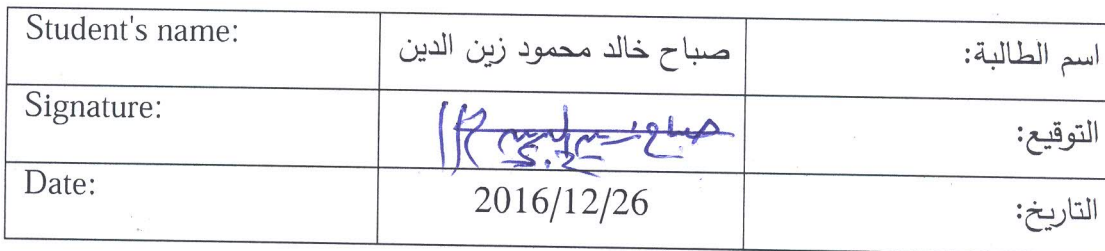 Student's name: صباح خالد محمود زين الدين اسم الطالبة:
Signature: التوقيع:
Date: 2016/12/26 التاريخ: